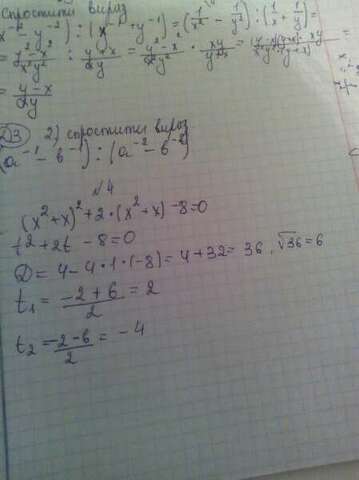 Спростити вираз
x⁻² - y⁻²) : (x⁻¹ + y⁻¹) = (1/x² - 1/y²) : (1/x + 1/y) =
= y² - x²/x²y² : y + x/xy = y² - x²/x²y² · xy/y+x =
= y - x/xy
ДЗ 2) спростити вираз
(a⁻¹ - b⁻¹) : (a⁻² - b⁻²)
№4
(x² + x)² + 2 · (x² + x) - 8 = 0
t² + 2t - 8 = 0
D = 4 - 4 · 1 · (-8) = 4 + 32 = 36, √36 = 6
t₁ = -2 + 6/2 = 2
t₂ = -2 - 6/2 = -4